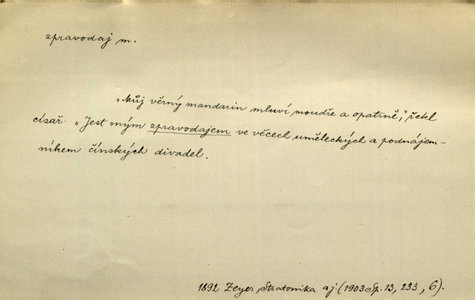 zpravodaj m.
„Můj věrný mandarin mluví moudře a opatrně,“ řekl
císař. „Jest mým zpravodajem ve věcech uměleckých a podnájem-
níkem čínských divadel.
1892 Zeyer, Stratonika aj (1903 Sp. 13, 233, 6).